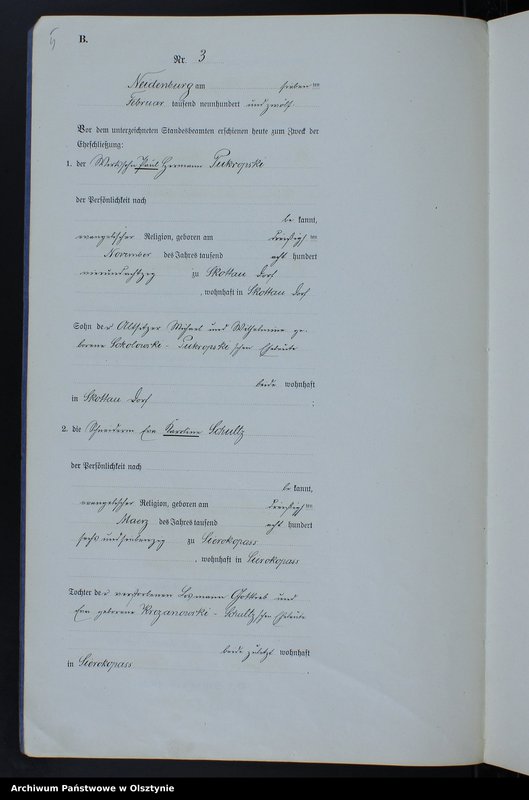 B.
Nr. 3
Neidenburg am sieben ten
Februar tausend neunhundert und zwölf
Vor dem unterzeichneten Standesbeamten erschienen heute zum Zweck der
Eheschließung:
1. der Wirtssohn Paul Hermann Pukropski
der Persönlichkeit nach
be kannt,
evangelischer Religion, geboren am dreißigsten
November des Jahres tausend acht hundert
vierundachtzig zu Skottau Dorf
, wohnhaft in Skottau Dorf
Sohn der Altsitzer Michael und Wilhelmine ge-
borene Sokolowski - Pukropski'schen Eheleute
beide wohnhaft
in Skottau Dorf
2. die Schneiderin Eva Karoline Schultz
der Persönlichkeit nach
be kannt,
evangelischer Religion, geboren am dreißigsten
Maerz des Jahres tausend acht hundert
sechsundsiebenzig zu Sierokopass
, wohnhaft in Sierokopass
Tochter der verstorbenen Losmann Gottlieb und
Eva geborene - Schultz'schen Eheleute
beide zuletzt wohnhaft
in Sierokopass
Archiwum Państwowe w Olsztynie